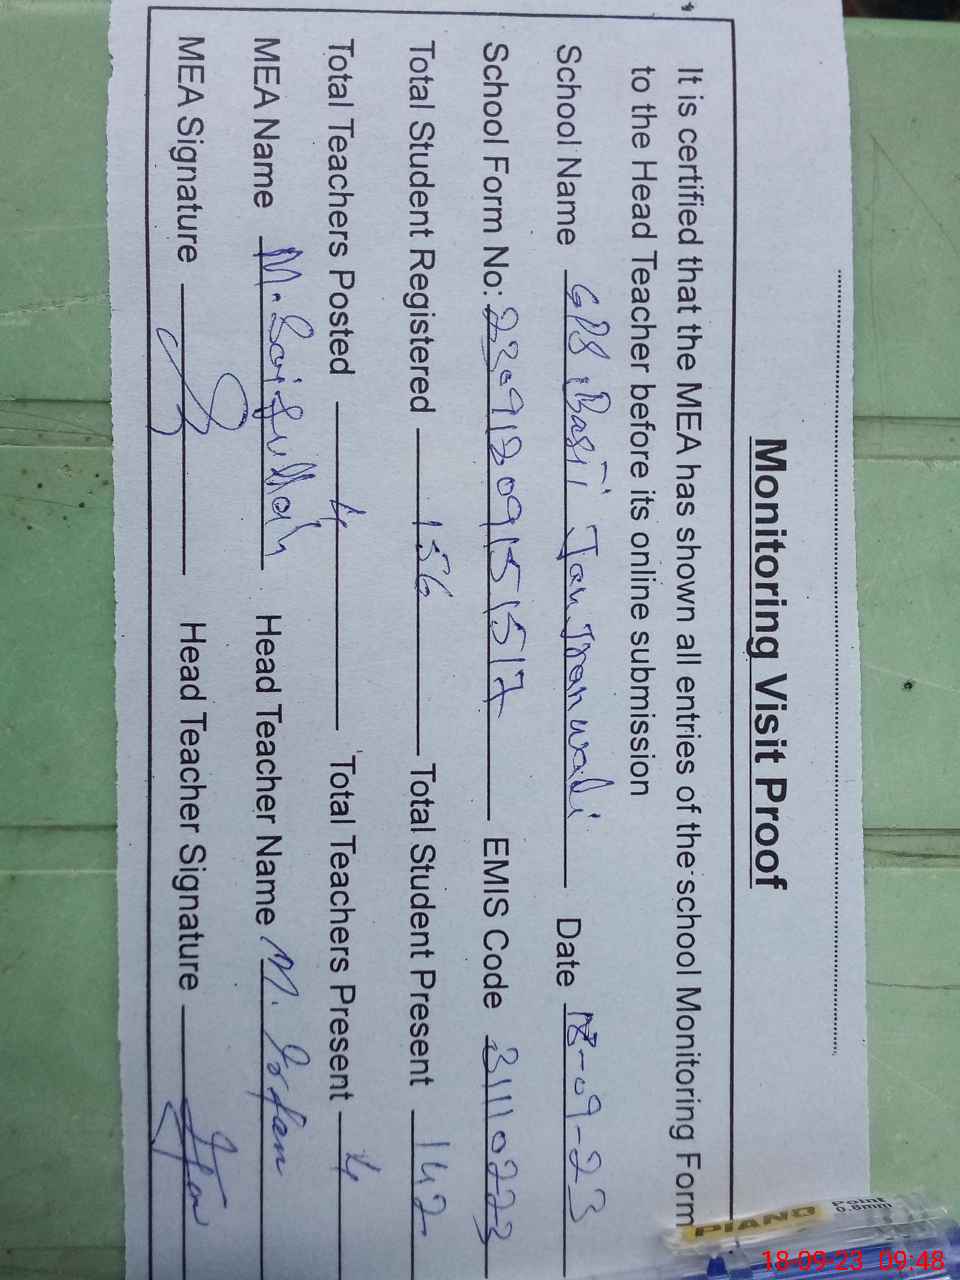 Monitoring Visit Proof
It is certified that the MEA has shown all entries of the school Monitoring Form
to the Head Teacher before its online submission
School Name GPS Basti Jan Tranwali Date 18-09-23
School Form No: 23091209151517 EMIS Code 31110223
Total Student Registered 156 Total Student Present 142
Total Teachers Posted 4 Total Teachers Present 4
MEA Name M. Saifullah Head Teacher Name M. Irfan
MEA Signature Head Teacher Signature
PIANO Point 0.8mm
18-09-23 09:48